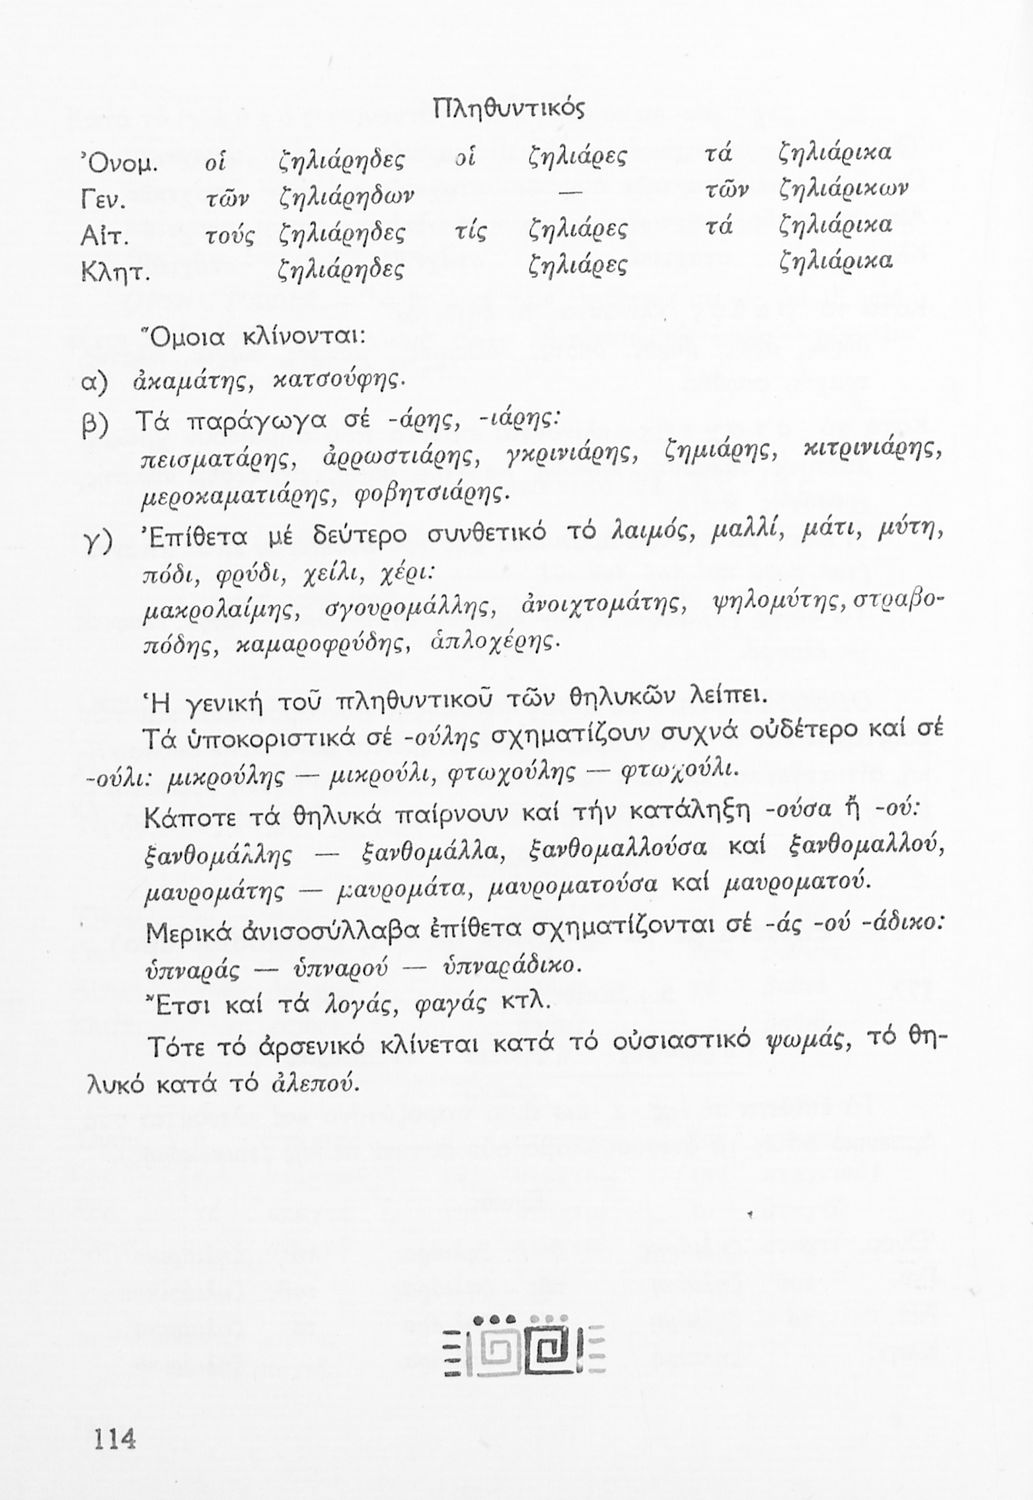 Πληθυντικός
Ὀνομ. οἱ ζηλιάρηδες οἱ ζηλιάρες τά ζηλιάρικα
Γεν. τῶν ζηλιάρηδων — τῶν ζηλιάρικων
Αἰτ. τούς ζηλιάρηδες τίς ζηλιάρες τά ζηλιάρικα
Κλητ. ζηλιάρηδες ζηλιάρες ζηλιάρικα
Ὅμοια κλίνονται:
α) ἀκαμάτης, κατσούφης.
β) Τά παράγωγα σέ -άρης, -ιάρης:
πεισματάρης, ἀρρωστιάρης, γκρινιάρης, ζημιάρης, κιτρινιάρης,
μεροκαματιάρης, φοβητσιάρης.
γ) Ἐπίθετα μέ δεύτερο συνθετικό τό λαιμός, μαλλί, μάτι, μύτη,
πόδι, φρύδι, χείλι, χέρι:
μακρολαίμης, σγουρομάλλης, ἀνοιχτομάτης, ψηλομύτης, στραβο-
πόδης, καμαροφρύδης, ἁπλοχέρης.
Ἡ γενική τοῦ πληθυντικοῦ τῶν θηλυκῶν λείπει.
Τά ὑποκοριστικά σέ -ούλης σχηματίζουν συχνά οὐδέτερο καί σέ
-ούλι: μικρούλης — μικρούλι, φτωχούλης — φτωχούλι.
Κάποτε τά θηλυκά παίρνουν καί τήν κατάληξη -ούσα ἤ -ού:
ξανθομάλλης — ξανθομάλλα, ξανθομαλλούσα καί ξανθομαλλού,
μαυρομάτης — μαυρομάτα, μαυροματούσα καί μαυροματού.
Μερικά ἀνισοσύλλαβα ἐπίθετα σχηματίζονται σέ -άς -ού -άδικο:
ὑπναράς — ὑπναρού — ὑπναράδικο.
Ἔτσι καί τά λογάς, φαγάς κτλ.
Τότε τό ἀρσενικό κλίνεται κατά τό οὐσιαστικό ψωμάς, τό θη-
λυκό κατά τό ἀλεπού.
114